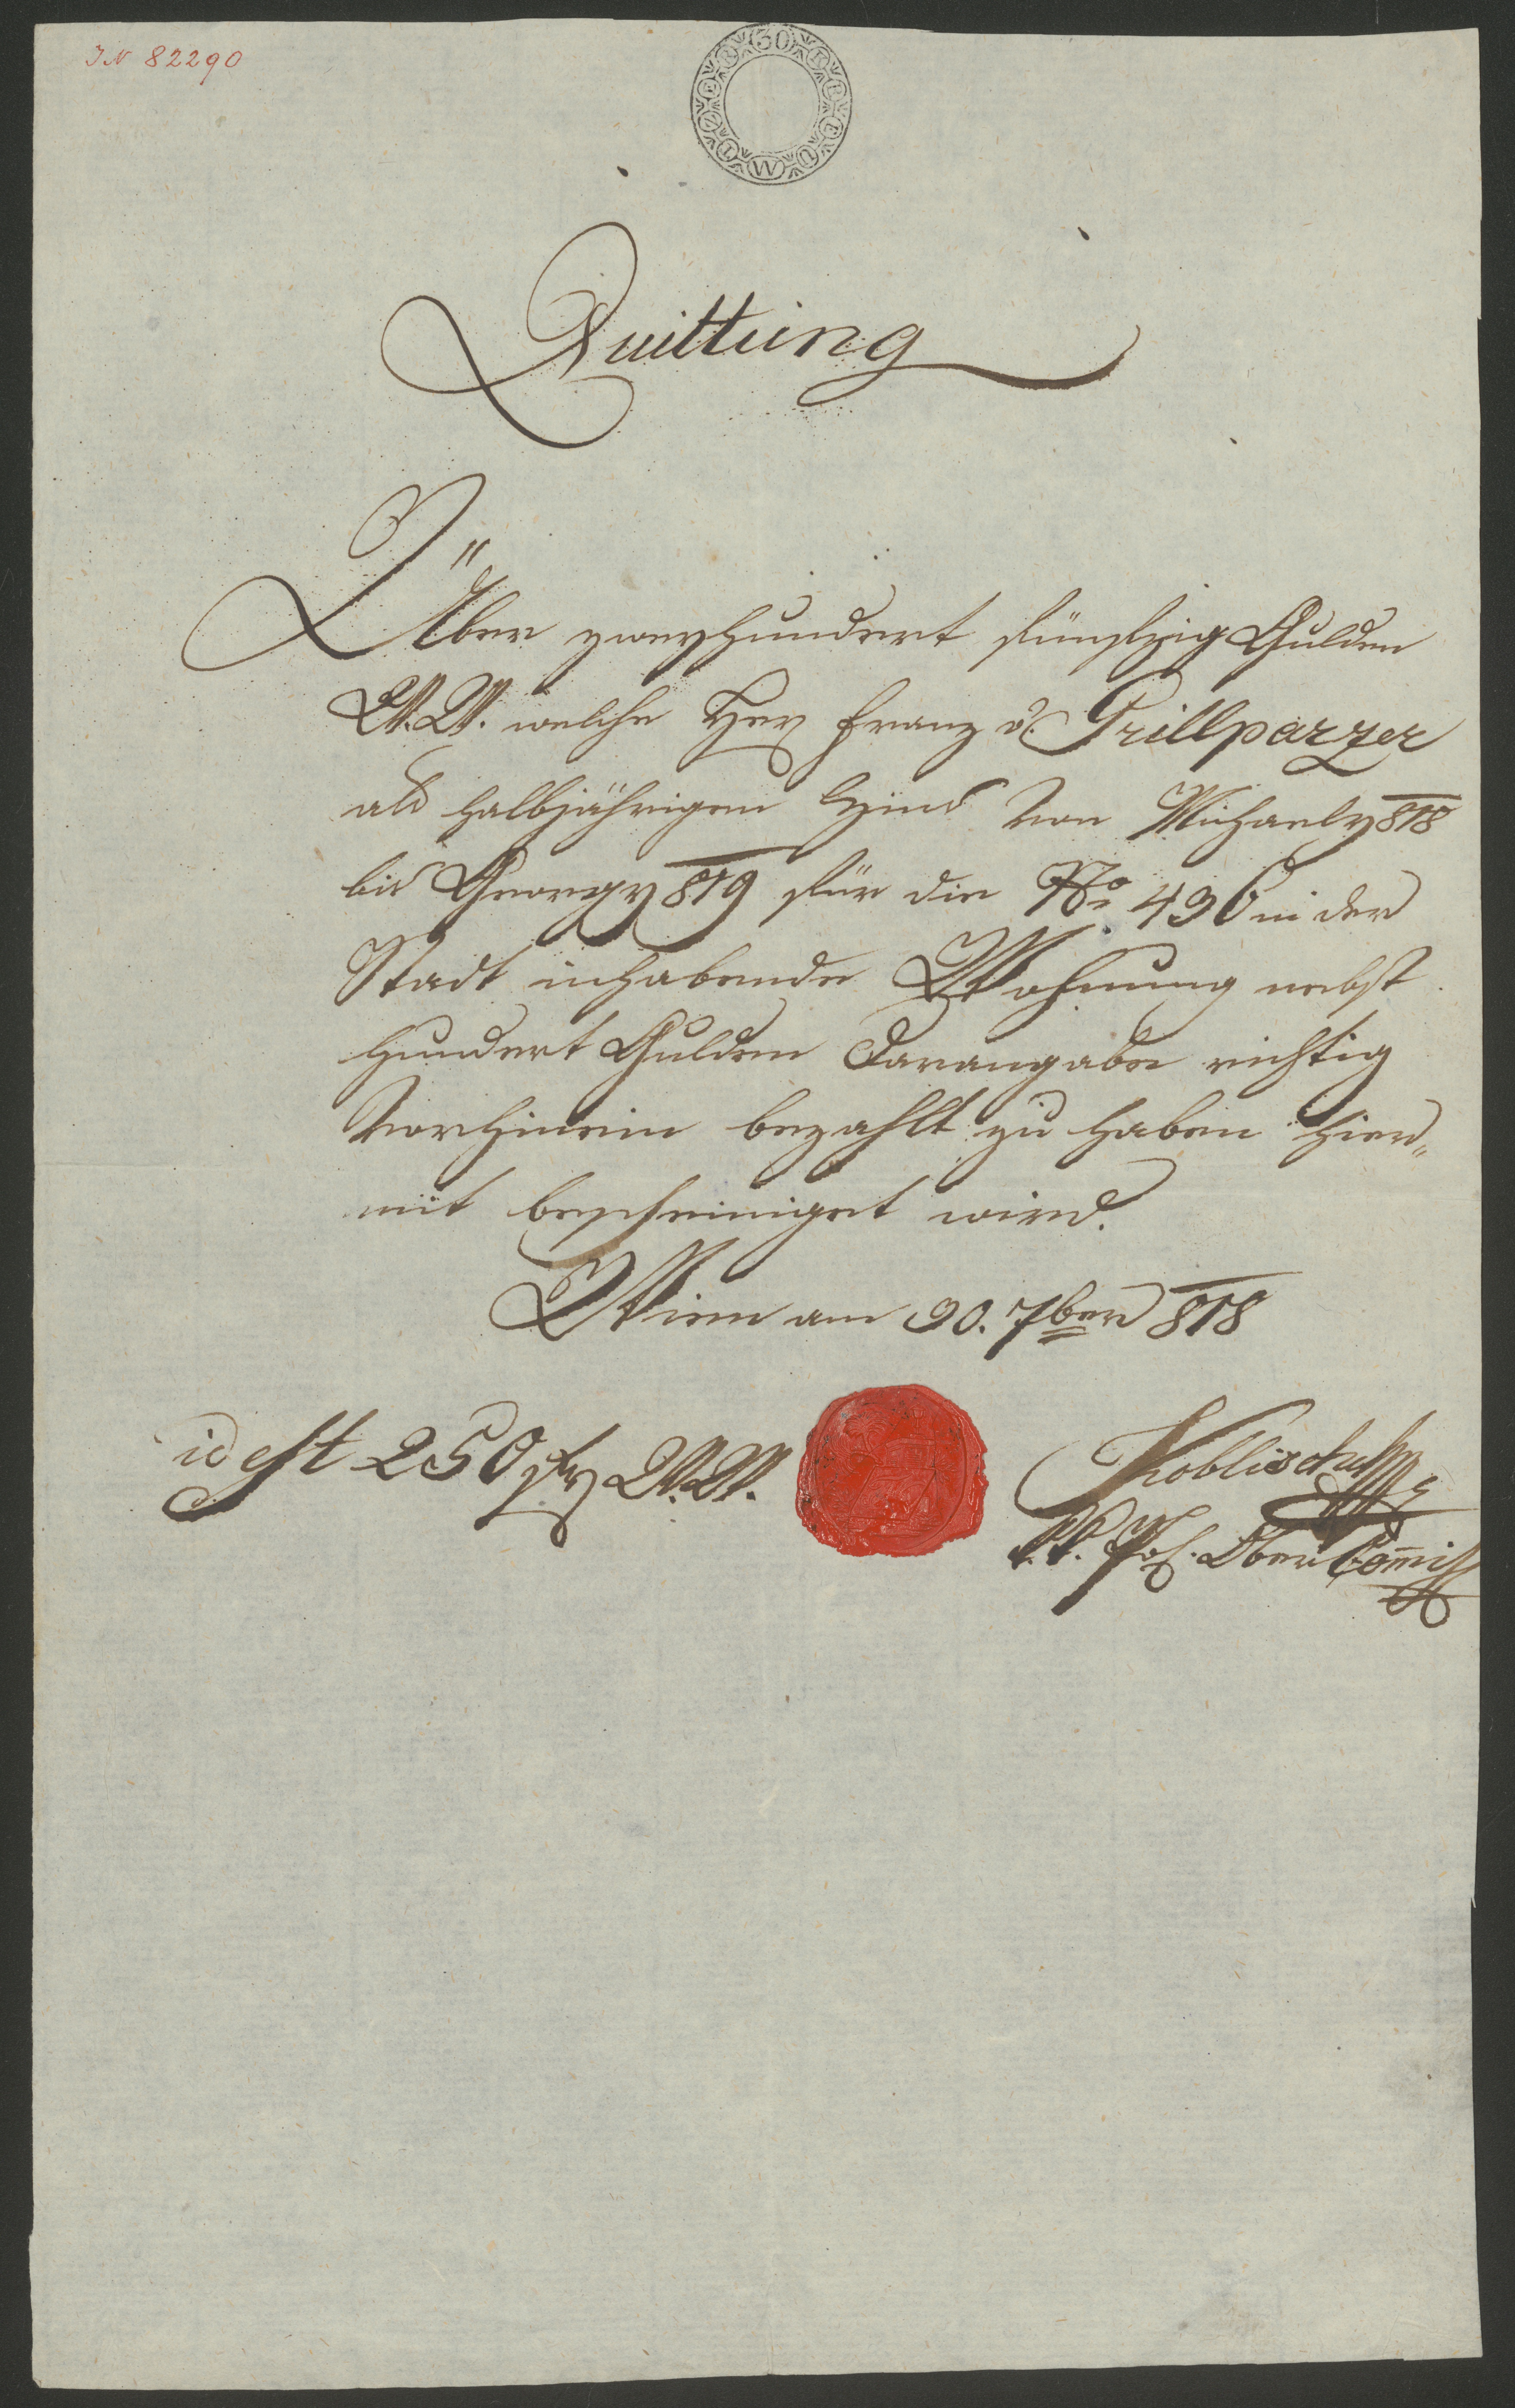 IN 82290
30
Quittung
Über zweyhundert fünfzig Gulden
W.W. welche Herr Franz v. Grillparzer
als halbjährigen Zins von Michaely 818
bis Georgy 819 für die No 436 in der
Stadt inhabende Wohnung nebst
hundert Gulden Darangabe richtig
vorhinein bezahlt zu haben hier=
mit bescheiniget wird.
Wien am 30. 7ber 818
id est 250 fr W.W.
Koblischek
k.k. Pol. Ober Com̅iss